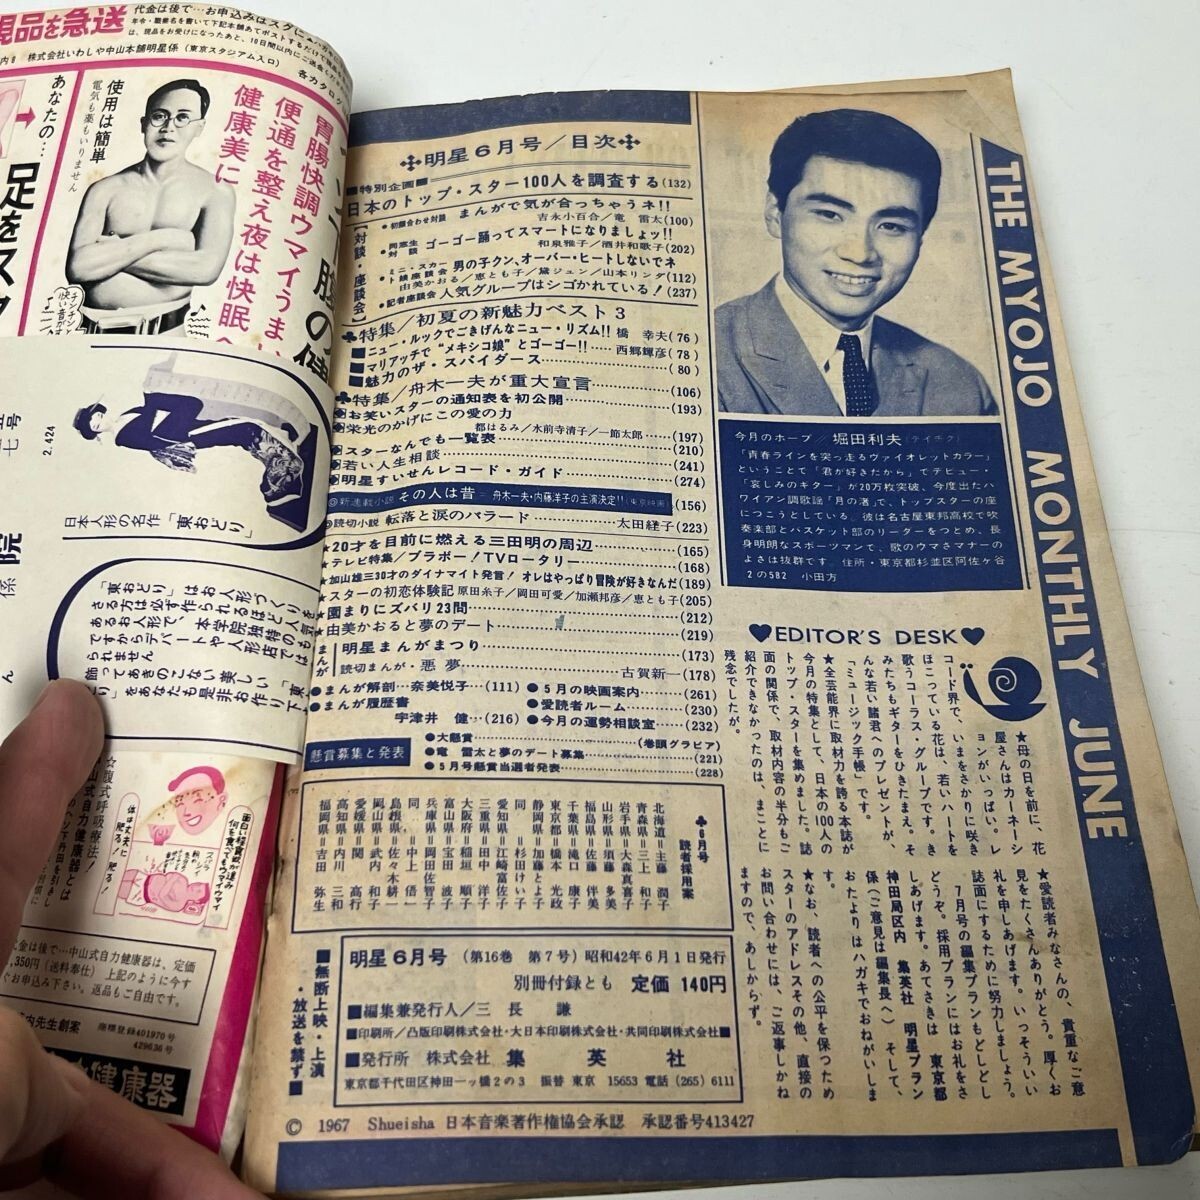 現品を急送
代金は後で…お申込みはスグに
株式会社いわしや中山本舗明星係(東京スタジアム入口)
各カタログ
あなたの…
使用は簡単
電気も薬もいりません
胃腸快調ウマイうまい
便通を整え夜は快眠
健康美に
足を
2.424
日本人形の名作「東おどり」
☆腹式呼吸療法!
面白い程食慾が進み
何を食べてもウマイウマイ
体は丈夫に
肥る!肥る!
代金は後で…中山式自力健康器は、定価
350円(送料奉仕) 上記のように今す
ぐお申込み下さい。返品もご自由です。
商標登録401970号
429636号
健康器
明星6月号/目次
■特別企画■
日本のトップ・スター100人を調査する(132)
【対談・座談会】
●初顔合わせ対談 まんがで気が合っちゃうネ!!
吉永小百合/竜 雷太(100)
●同窓生対談 ゴーゴー踊ってスマートになりましょッ!!
和泉雅子/酒井和歌子(202)
●ミニ・スカート娘座談会 男の子クン、オーバー・ヒートしないでネ
由美かおる/恵とも子/黛ジュン/山本リンダ(112)
●記者座談会 人気グループはシゴかれている!(237)
特集/初夏の新魅力ベスト3
■ニュー・ルックでごきげんなニュー・リズム!! 橋 幸夫(76)
■マリアッチで“メキシコ娘”とゴーゴー!!……西郷輝彦(78)
■魅力のザ・スパイダース……(80)
特集/舟木一夫が重大宣言……(106)
お笑いスターの通知表を初公開……(193)
栄光のかげにこの愛の力
都はるみ/水前寺清子/一節太郎……(197)
スターなんでも一覧表……(210)
若い人生相談……(241)
明星すいせんレコード・ガイド……(274)
◎新連載小説 その人は昔=舟木一夫・内藤洋子の主演決定!!(東京映画)(156)
◎読切小説 転落と涙のバラード……太田経子(223)
★20才を目前に燃える三田明の周辺……(165)
★テレビ特集/ブラボー!TVロータリー……(168)
★加山雄三30才のダイナマイト発言! オレはやっぱり冒険が好きなんだ(189)
★スターの初恋体験記 原田糸子/岡田可愛/加瀬邦彦/恵とも子(205)
★園まりにズバリ23問……(212)
★由美かおると夢のデート……(219)
まんが
明星まんがまつり……(173)
読切まんが・悪夢……古賀新一(178)
●まんが解剖…奈美悦子…(111)
●まんが履歴書
宇津井 健…(216)
●5月の映画案内……(261)
●愛読者ルーム……(230)
●今月の運勢相談室……(232)
懸賞募集と発表
●大懸賞……(巻頭グラビア)
●竜 雷太と夢のデート募集……(221)
●5月号懸賞当選者発表……(228)
6月号
読者採用案
北海道=主藤 潤子
青森県=三上 和子
岩手県=大森真喜子
山形県=須藤 多美
福島県=佐藤 伴美
千葉県=滝口 康子
東京都=橋本 光政
静岡県=加藤とよ子
同 =杉田けい子
愛知県=江崎富佐子
三重県=田中 洋子
大阪府=稲垣 順子
富山県=宝田 波子
兵庫県=岡田佐智子
同 =中上 倍一
島根県=佐々木耕一
岡山県=武内 高子
愛媛県=関 和行
高知県=内川 三和
福岡県=吉田 弥生
■無断上映・上演・放送を禁ず■
明星6月号 (第16巻 第7号) 昭和42年6月1日発行
別冊付録とも 定価 140円
■編集兼発行人/三 長 謙
■印刷所/凸版印刷株式会社・大日本印刷株式会社・共同印刷株式会社■
■発行所 株式会社 集英社
東京都千代田区神田一ツ橋2の3 振替 東京 15653 電話 (265) 6111
© 1967 Shueisha 日本音楽著作権協会承認 承認番号413427
THE MYOJO MONTHLY JUNE
今月のホープ/堀田利夫(テイチク)
「青春ラインを突っ走るヴァイオレットカラー」
ということで「君が好きだから」でデビュー・
「哀しみのギター」が20万枚突破、今度出たハ
ワイアン調歌謡「月の渚」で、トップスターの座
につこうとしている。彼は名古屋東邦高校で吹
奏楽部とバスケット部のリーダーをつとめ、長
身明朗なスポーツマンで、歌のウマさマナーの
よさは抜群です。住所・東京都杉並区阿佐ヶ谷
2の582 小田方
♥EDITOR'S DESK♥
★母の日を前に、花
屋さんはカーネーシ
ョンがいっぱい。レ
コード界で、いまをさかりに咲き
ほこっている花は、若いハートを
歌うコーラス・グループです。き
みたちもギターをひきたまえ、そ
んな若い諸君へのプレゼントが、
「ミュージック手帳」です。
★全芸能界に取材力を誇る本誌が
今月の特集として、日本の100人の
トップ・スターを集めました。誌
面の関係で、取材内容の半分もご
紹介できなかったのは、まことに
残念でしたが。
★愛読者みなさんの、貴重なご意
見をたくさんありがとう。厚くお
礼を申しあげます。いっそういい
誌面にするために努力しましょう。
7月号の編集プランもどしどし
どうぞ。採用プランにはお礼をさ
しあげます。あてさきは 東京都
神田局区内 集英社 明星プラン
係(ご意見は編集長へ)そして、
おたよりはハガキでおねがいしま
す。
★なお、読者への公平を保つため
スターのアドレスその他、直接の
お問い合わせには、ご返事しかね
ますので、あしからず。